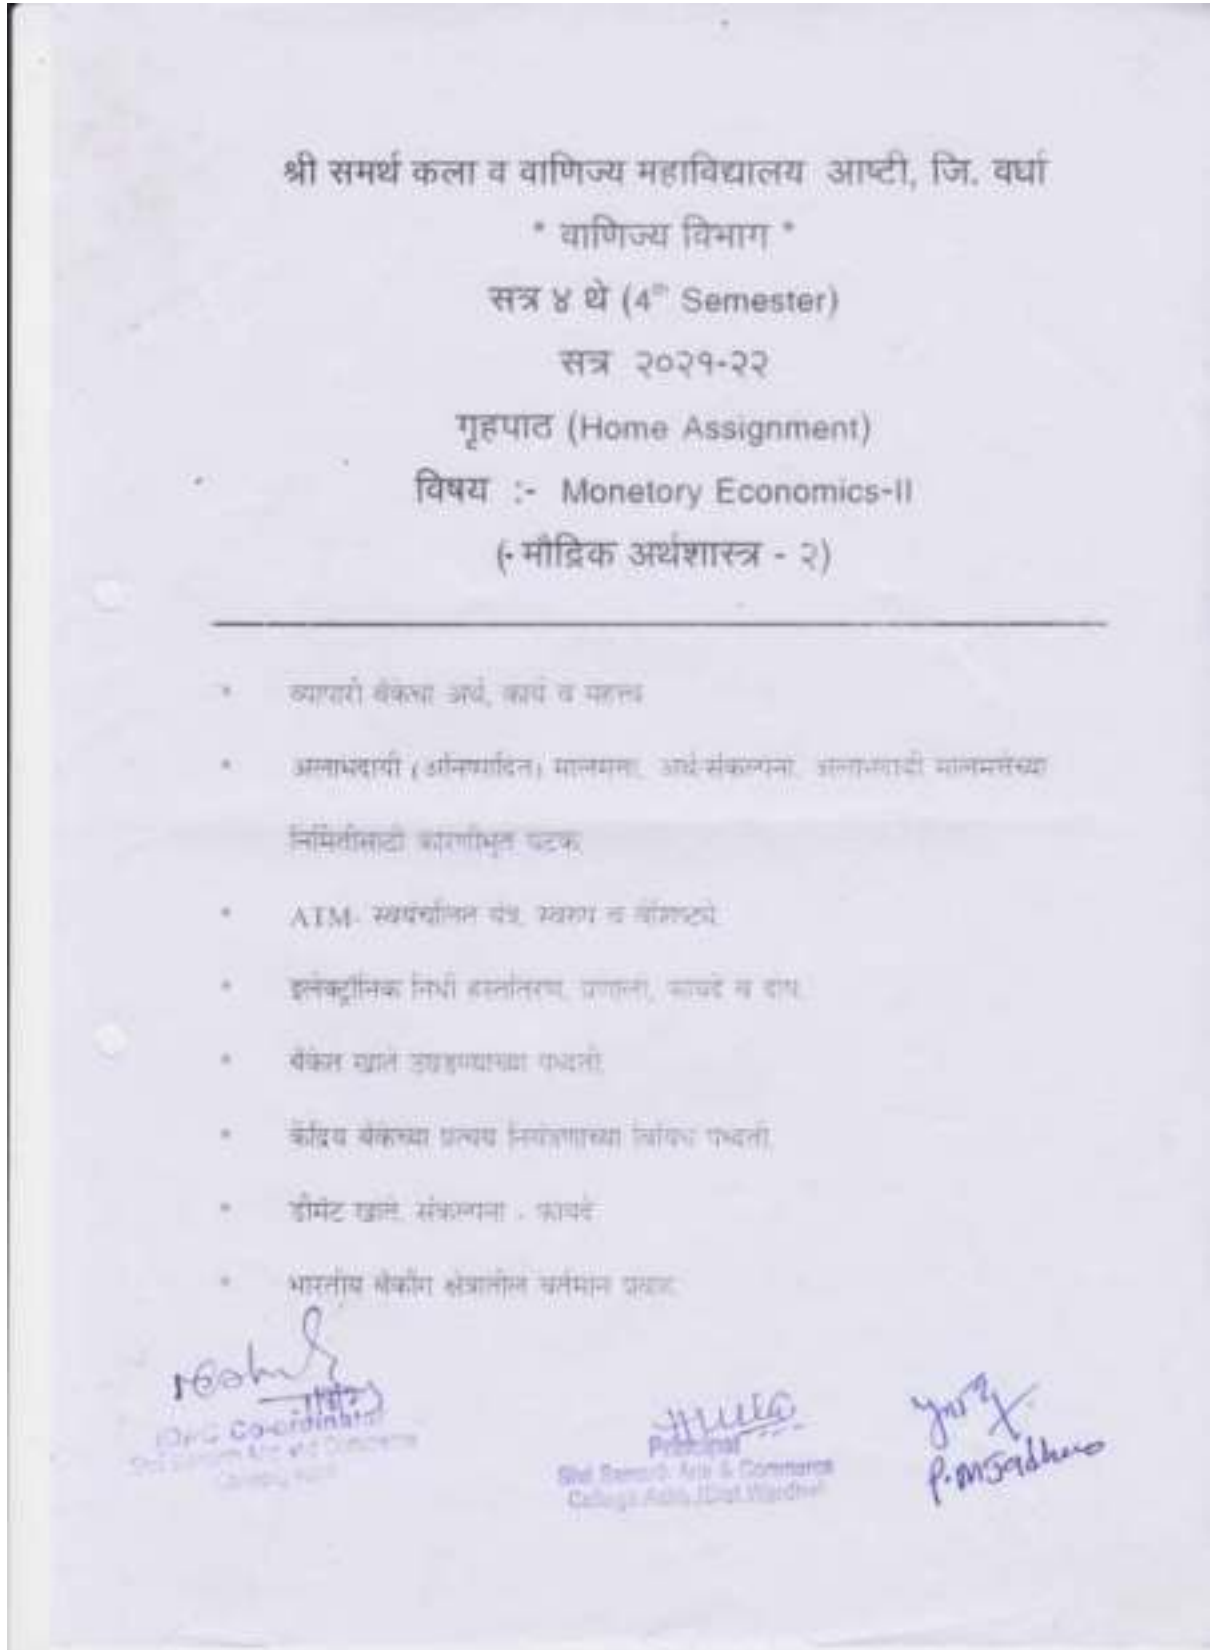 श्री समर्थ कला व वाणिज्य महाविद्यालय आष्टी, जि. वर्धा
* वाणिज्य विभाग *
सत्र ४ थे (4th Semester)
सत्र २०२१-२२
गृहपाठ (Home Assignment)
विषय :- Monetory Economics-II
(- मौद्रिक अर्थशास्त्र - २)
* व्यापारी बँकेचा अर्थ, कार्य व महत्त्व
* अलाभदायी (अनिष्पादित) मालमत्ता, अर्थ-संकल्पना, मालमत्तेच्या
निर्मितीसाठी कारणीभूत घटक
* ATM- स्वयंचलित यंत्र, स्वरुप व वैशिष्ट्ये
* इलेक्ट्रॉनिक निधी हस्तांतरण, प्रणाली, फायदे व दोष.
* बँकेत खाते उघडण्याच्या पध्दती.
* केंद्रिय बँकेच्या प्रत्यय नियंत्रणाच्या विविध पध्दती.
* डीमॅट खाते, संकल्पना - फायदे
* भारतीय बँकींग क्षेत्रातील वर्तमान प्रवाह.
Co-ordinator
Principal
Shri Samarth Arts & Commerce
College Ashti, (Dist. Wardha)